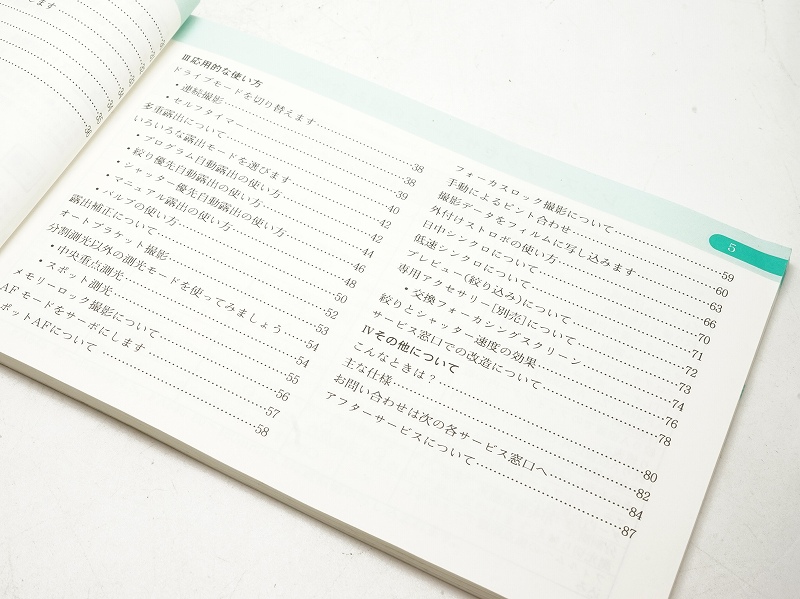 III応用的な使い方
ドライブモードを切り替えます……38
・連続撮影……38
・セルフタイマー……39
多重露出について……40
いろいろな露出モードを選びます……42
・プログラム自動露出の使い方……42
・絞り優先自動露出の使い方……44
・シャッター優先自動露出の使い方……46
・マニュアル露出の使い方……48
・バルブの使い方……50
露出補正について……52
オートブラケット撮影……53
分割測光以外の測光モードを使ってみましょう……54
・中央重点測光……54
・スポット測光……55
メモリーロック撮影について……56
AFモードをサーボにします……57
ポットAFについて……58
5
フォーカスロック撮影について……59
手動によるピント合わせ……60
撮影データをフィルムに写し込みます……63
外付けストロボの使い方……66
日中シンクロについて……70
低速シンクロについて……71
プレビュー(絞り込み)について……72
専用アクセサリー[別売]について……73
・交換フォーカシングスクリーン……74
絞りとシャッター速度の効果……76
サービス窓口での改造について……78
IVその他について
こんなときは?……80
主な仕様……82
お問い合わせは次の各サービス窓口へ……84
アフターサービスについて……87